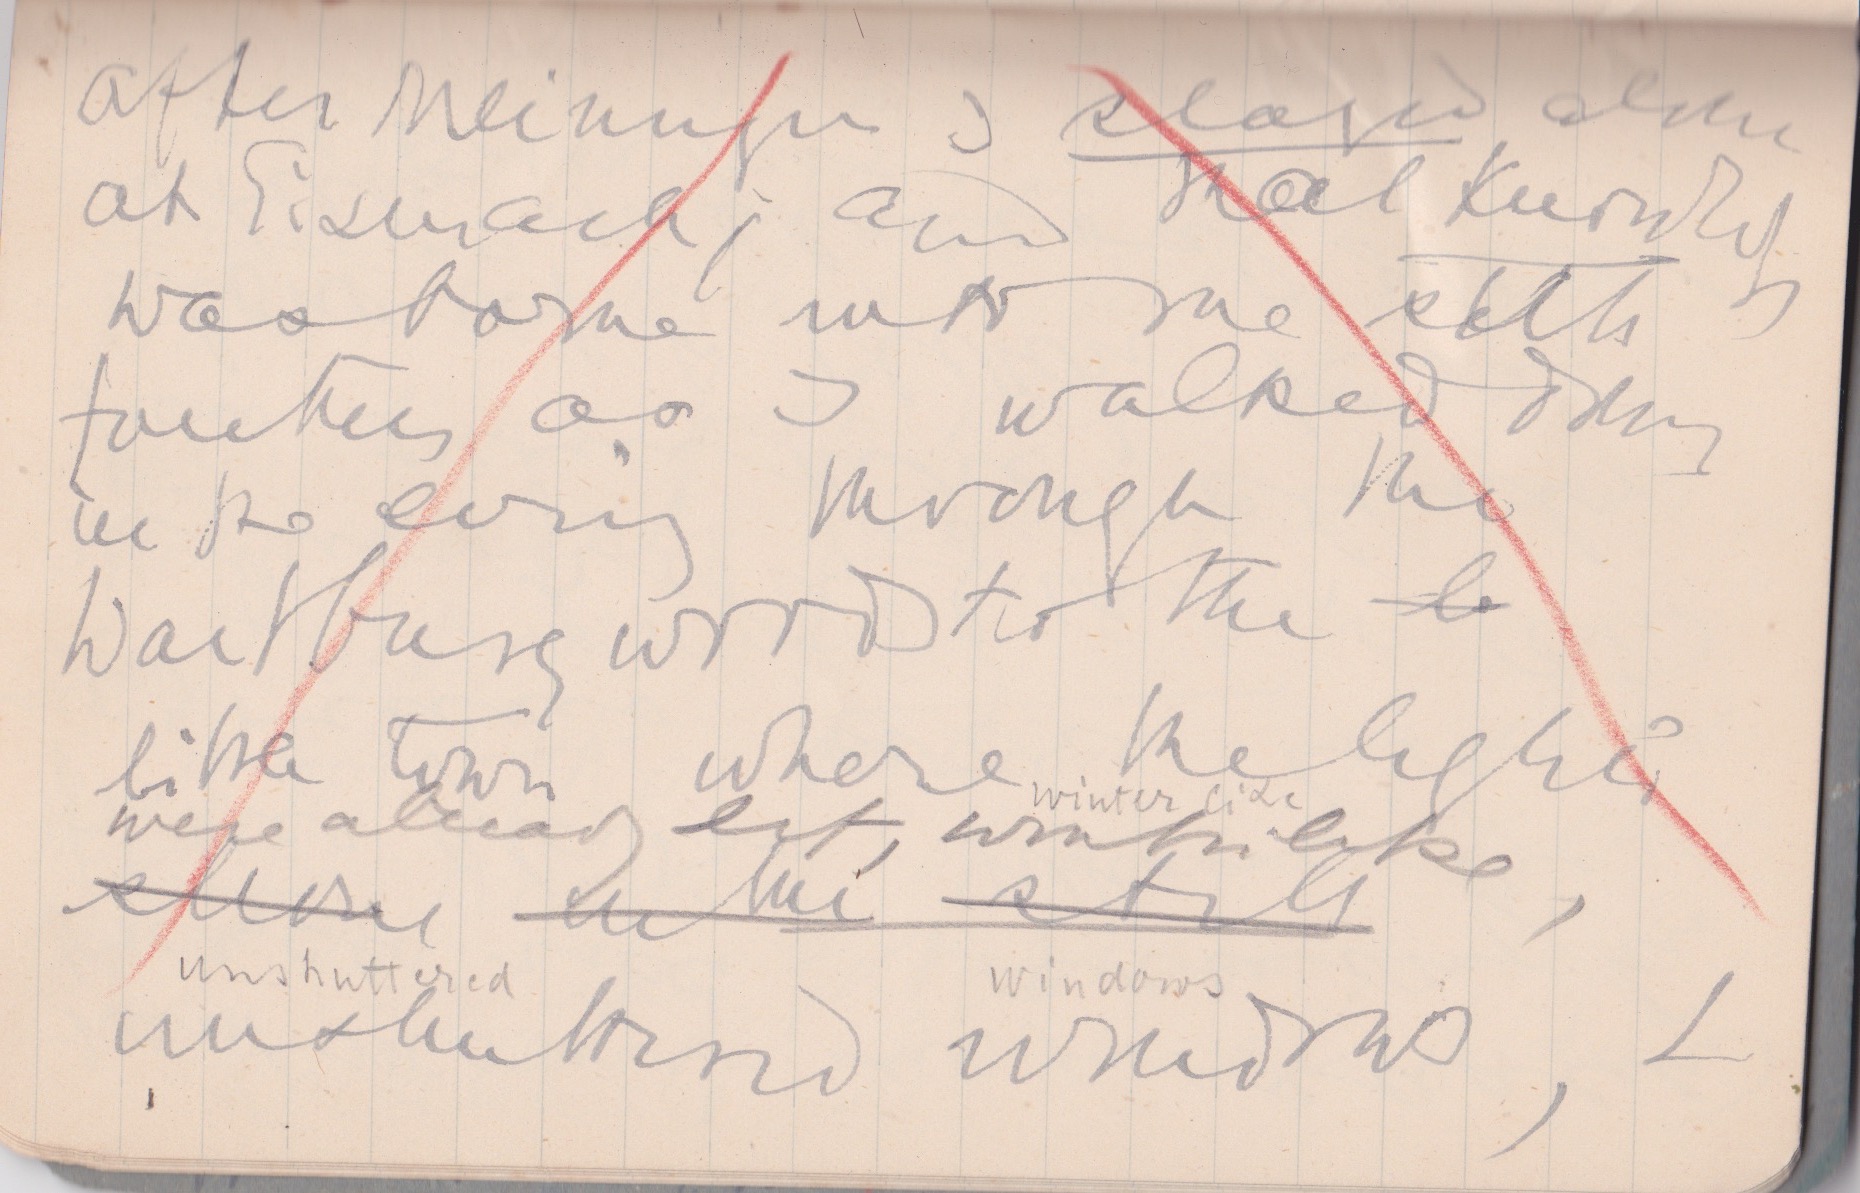 after Meiningen I stayed alone
at Eisenach; and that knowledge
was borne into me still
further, as I walked down
in the evening through the
Wartburg woods to the le
little town where the lights
winterlike
were already lit, winterlike,
shone in the still
unshuttered windows
unshuttered windows, L